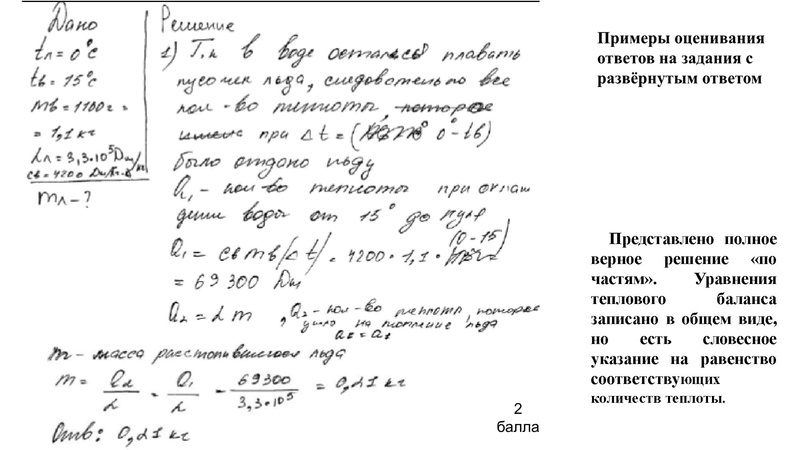 Дано
tл = 0°C
tв = 15°C
mв = 1100г =
= 1,1 кг
λл = 3,3·10⁵ Дж/кг
cв = 4200 Дж/кг·К
mл - ?
Решение
1) Т.к в воде остался плавать
кусочек льда, следовательно все
кол-во теплоты,
при Δt = ( 0° - tв)
было отдано льду
Q₁ - кол-во теплоты при охлаж
дении воды от 15° до нуля
(0-15)
Q₁ = cвmв(Δt) = 4200 · 1,1 ·
= 69 300 Дж
Q₂ = λm , Q₂ - кол-во теплоты, которое
ушло на топление льда
Q₂ = Q₁
m - масса расстопившегося льда
m = Q₂/λ = Q₁/λ = 69300/3,3·10⁵ = 0,21 кг
Отв: 0,21 кг
2
балла
Примеры оценивания
ответов на задания с
развёрнутым ответом
Представлено полное
верное решение «по
частям». Уравнения
теплового баланса
записано в общем виде,
но есть словесное
указание на равенство
соответствующих
количеств теплоты.